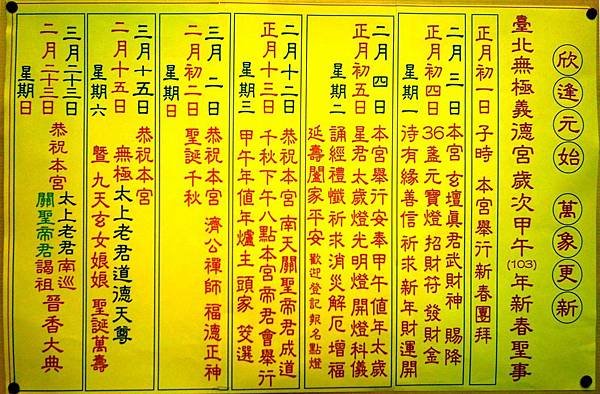 欣逢元始 萬象更新
臺北無極義德宮歲次甲午(103)年新春聖事
正月初一日 子時 本宮舉行新春團拜
二月三日
正月初四日
星期一
本宮 玄壇真君武財神 賜降
36盞元寶燈 招財符 發財金
待有緣善信 祈求新年財運開
二月四日
正月初五日
星期二
本宮舉行安奉甲午值年太歲
星君太歲燈光明燈 開燈科儀
誦經禮懺祈求消災解厄增福
延壽闔家平安 歡迎登記報名點燈
二月十二日
正月十三日
星期三
恭祝本宮 南天關聖帝君成道
千秋下午八點本宮帝君會舉行
甲午年值年爐主 頭家 筊選
三月二日
二月初二日
星期日
恭祝本宮 濟公禪師 福德正神
聖誕千秋
三月十五日
二月十五日
星期六
恭祝本宮
無極太上老君道德天尊
暨 九天玄女娘娘 聖誕萬壽
三月二十三日
二月二十三日
星期日
恭祝本宮
太上老君南巡
關聖帝君謁祖
晉香大典